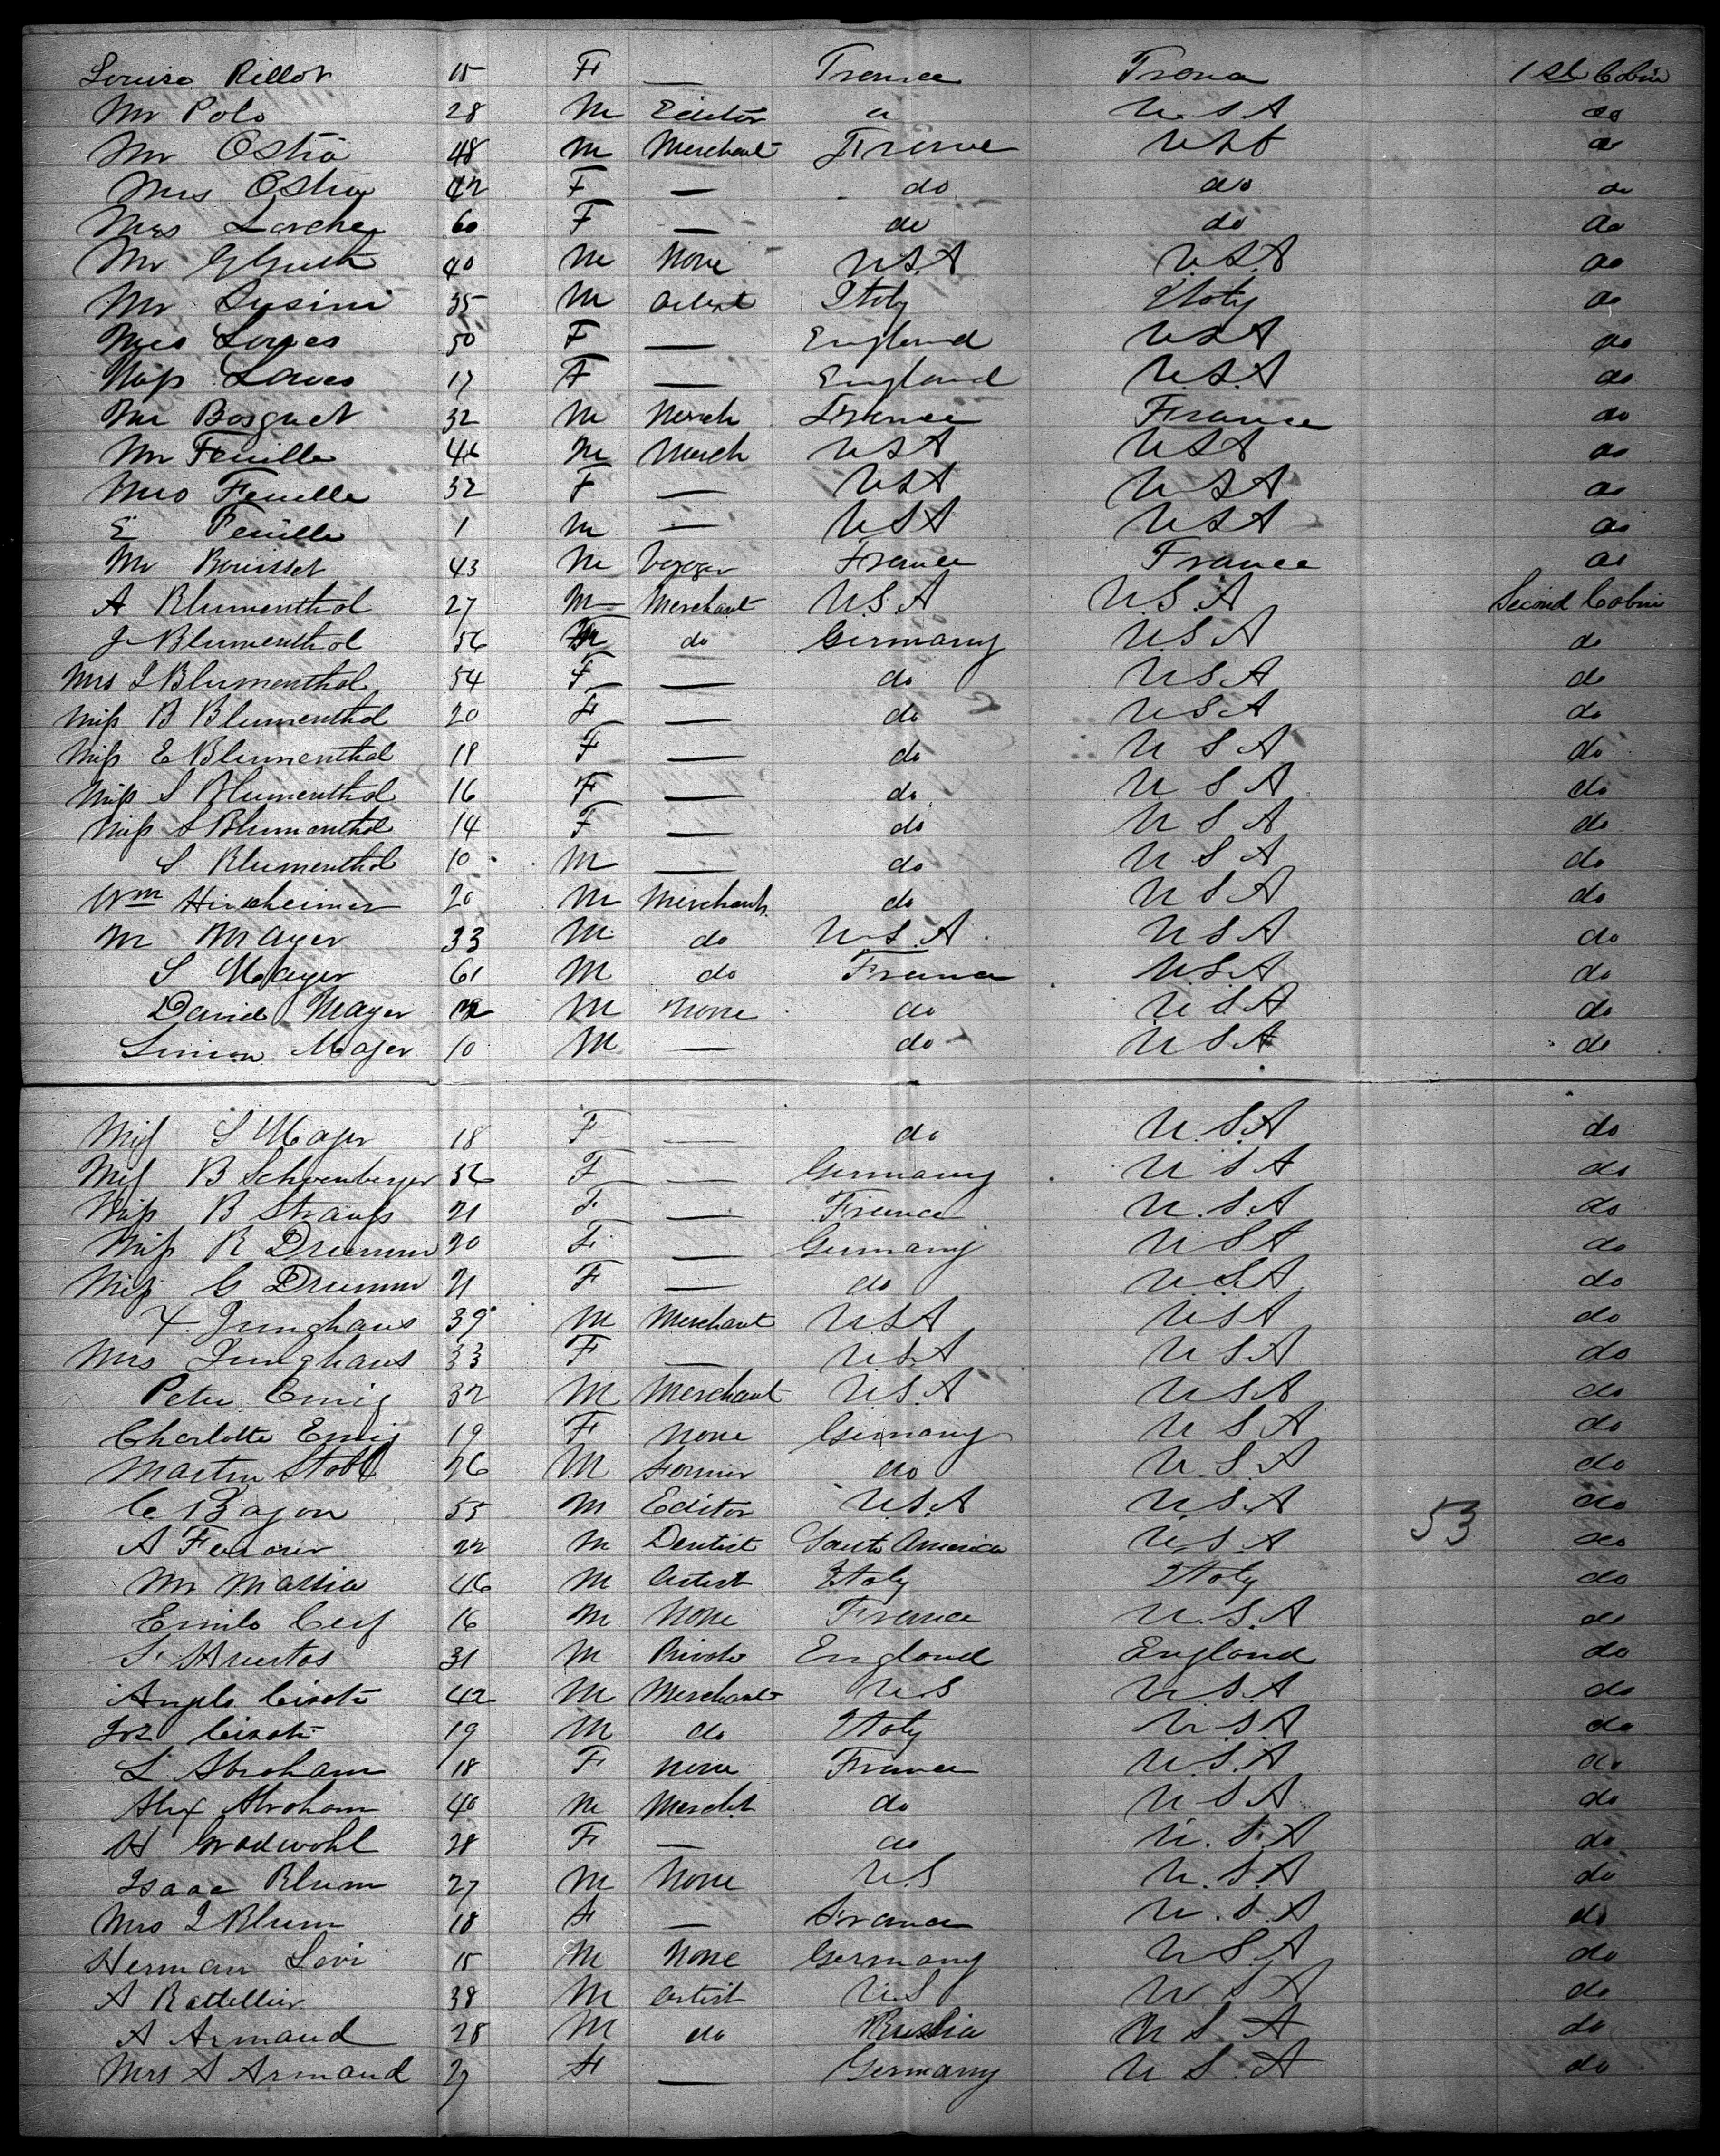 Louise Rillot 15 F — France France 1st Cabin
Mr Polo 28 M Editor do U.S.A do
Mr Ostra 48 M Merchant France USA do
Mrs Ostra 42 F — do do do
Mrs 60 F — do do do
Mr 40 M None U.S.A U.S.A do
Mr Susini 35 M Artist Italy Italy do
Mrs Lowes 50 F — England USA do
Miss Lowes 17 F — England U.S.A do
Mr Bosquet 32 M Merch France France do
Mr Feuille 46 M Merch USA USA do
Mrs Feuille 32 F — USA USA do
E Feuille 1 M — USA USA do
Mr Bouisset 43 M France France do
A Blumenthal 27 M Merchant U.S.A U.S.A Second Cabin
J Blumenthal 56 M do Germany U.S.A do
Mrs J Blumenthal 54 F — do U.S.A do
Miss B Blumenthal 20 F — do U.S.A do
Miss E Blumenthal 18 F — do U S A do
Miss S Blumenthal 16 F — do U S A do
Miss S Blumenthal 14 F — do U S A do
S Blumenthal 10 M — do U S A do
Wm Hirscheimer 20 M Merchant do U S A do
M Mayer 33 M do U.S.A. U S A do
S Mayer 61 M do France U.S.A do
David Mayer 12 M None do U S A do
Simon Mayer 10 M — do U S A do
Miss S Mayer 18 F — do U.S.A do
Miss B Schoenberger 36 F — Germany U S A do
Miss B Strauss 21 F — France U.S.A do
Miss R Drumm 20 F — Germany U S A do
Miss C Drumm 21 F — do U.S.A do
F. Junghaus 39 M Merchant USA USA do
Mrs Junghaus 33 F — U.S.A U S A do
Peter Emig 32 M Merchant U.S.A USA do
Charlotte Emig 19 F None Germany U S A do
Martin Stobl 26 M Farmer do U.S.A do
C Bajon 55 M Editor U.S.A U.S.A 53 do
A 22 M Dentist South America U.S.A do
Mr Massia 46 M Artist Italy Italy do
Emile Cerf 16 M None France U.S.A do
S. Huertas 31 M Private England England do
Angelo 42 M Merchant U.S U.S.A do
Jos 19 M do Italy U.S.A do
L Abraham 18 F None France U.S.A do
Alex Abraham 40 M Mercht do U S A do
H Gradwohl 28 F — do U.S.A do
Isaac Blum 27 M None U.S U.S.A do
Mrs I Blum 18 F — France U.S.A do
Herman Levi 15 M None Germany U S A do
A 38 M Artist U.S U S A do
A Armand 28 M do Russia U S A do
Mrs A Armand 27 F — Germany U S A do